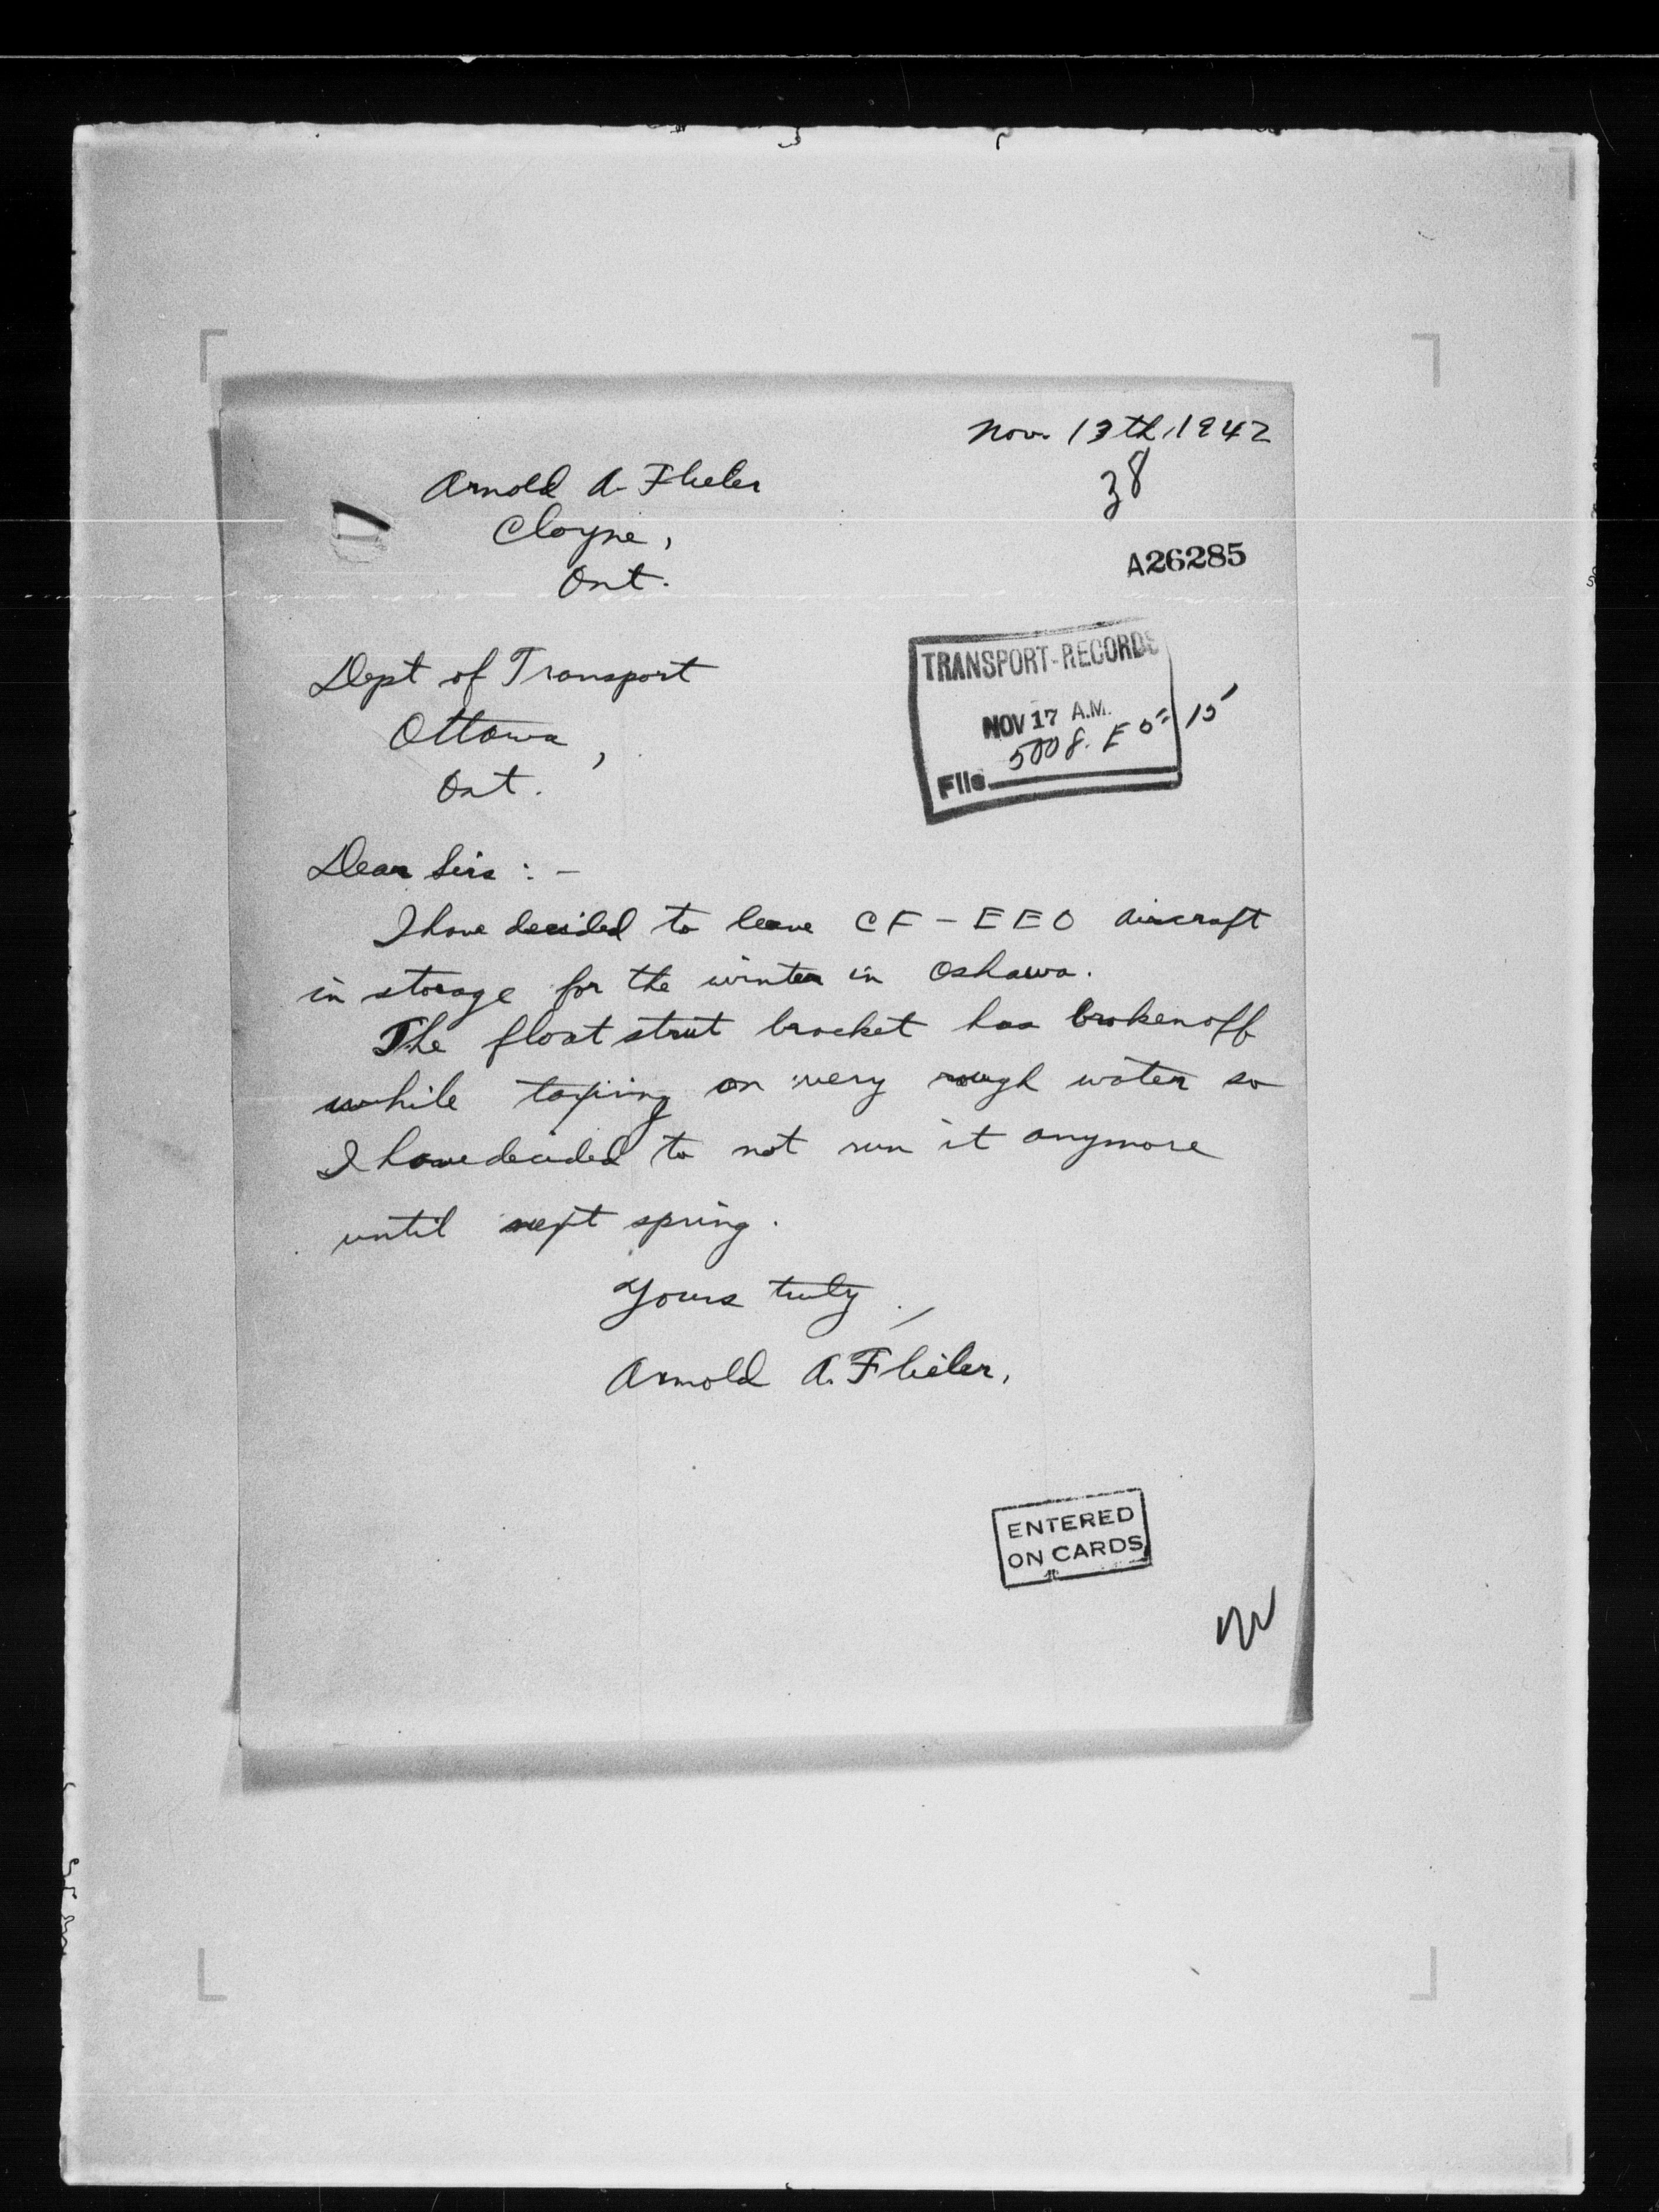 Nov. 13th, 1942
38
Arnold A. Flieler
Cloyne,
Ont.
A26285
Dept of Transport
Ottawa,
Ont.
TRANSPORT-RECORDS
NOV 17 A.M.
5008. E 5= 15
File
Dear Sirs : -
I have decided to leave CF-EEO aircraft
in storage for the winter in Oshawa.
The float strut bracket has broken off
while taxiing on very rough water so
I have decided to not run it anymore
until next spring.
Yours truly,
Arnold A. Flieler,
ENTERED
ON CARDS